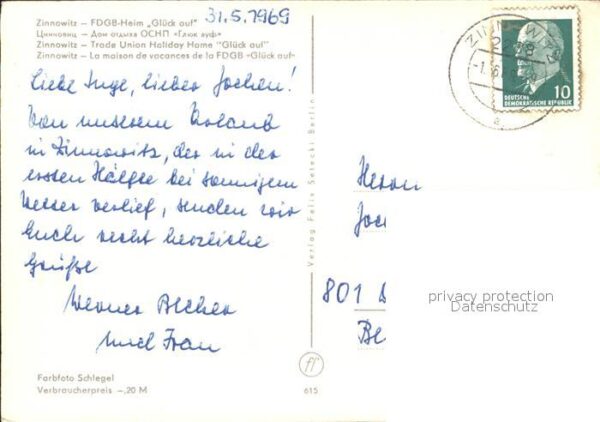 Zinnowitz – FDGB-Heim „Glück auf"
31.5.1969
Цинновиц – Дом отдыха ОСНП «Глюк ауф»
Zinnowitz – Trade Union Holiday Home "Glück auf"
Zinnowitz – La maison de vacances de la FDGB «Glück auf»
Liebe Inge, lieber Jochen!
Von unserem Urlaub
in Zinnowitz, der in der
ersten Hälfte bei sonnigem
Wetter verlief, senden wir
Euch recht herzliche
Grüße
Werner Becher
und Frau
Farbfoto Schlegel
Verbraucherpreis –,20 M
Verlag Felix Setecki Berlin
615
ZINNOWITZ
2238
a
10
DEUTSCHE
DEMOKRATISCHE REPUBLIK
Herrn
Joc
801 D
Be
privacy protection
Datenschutz